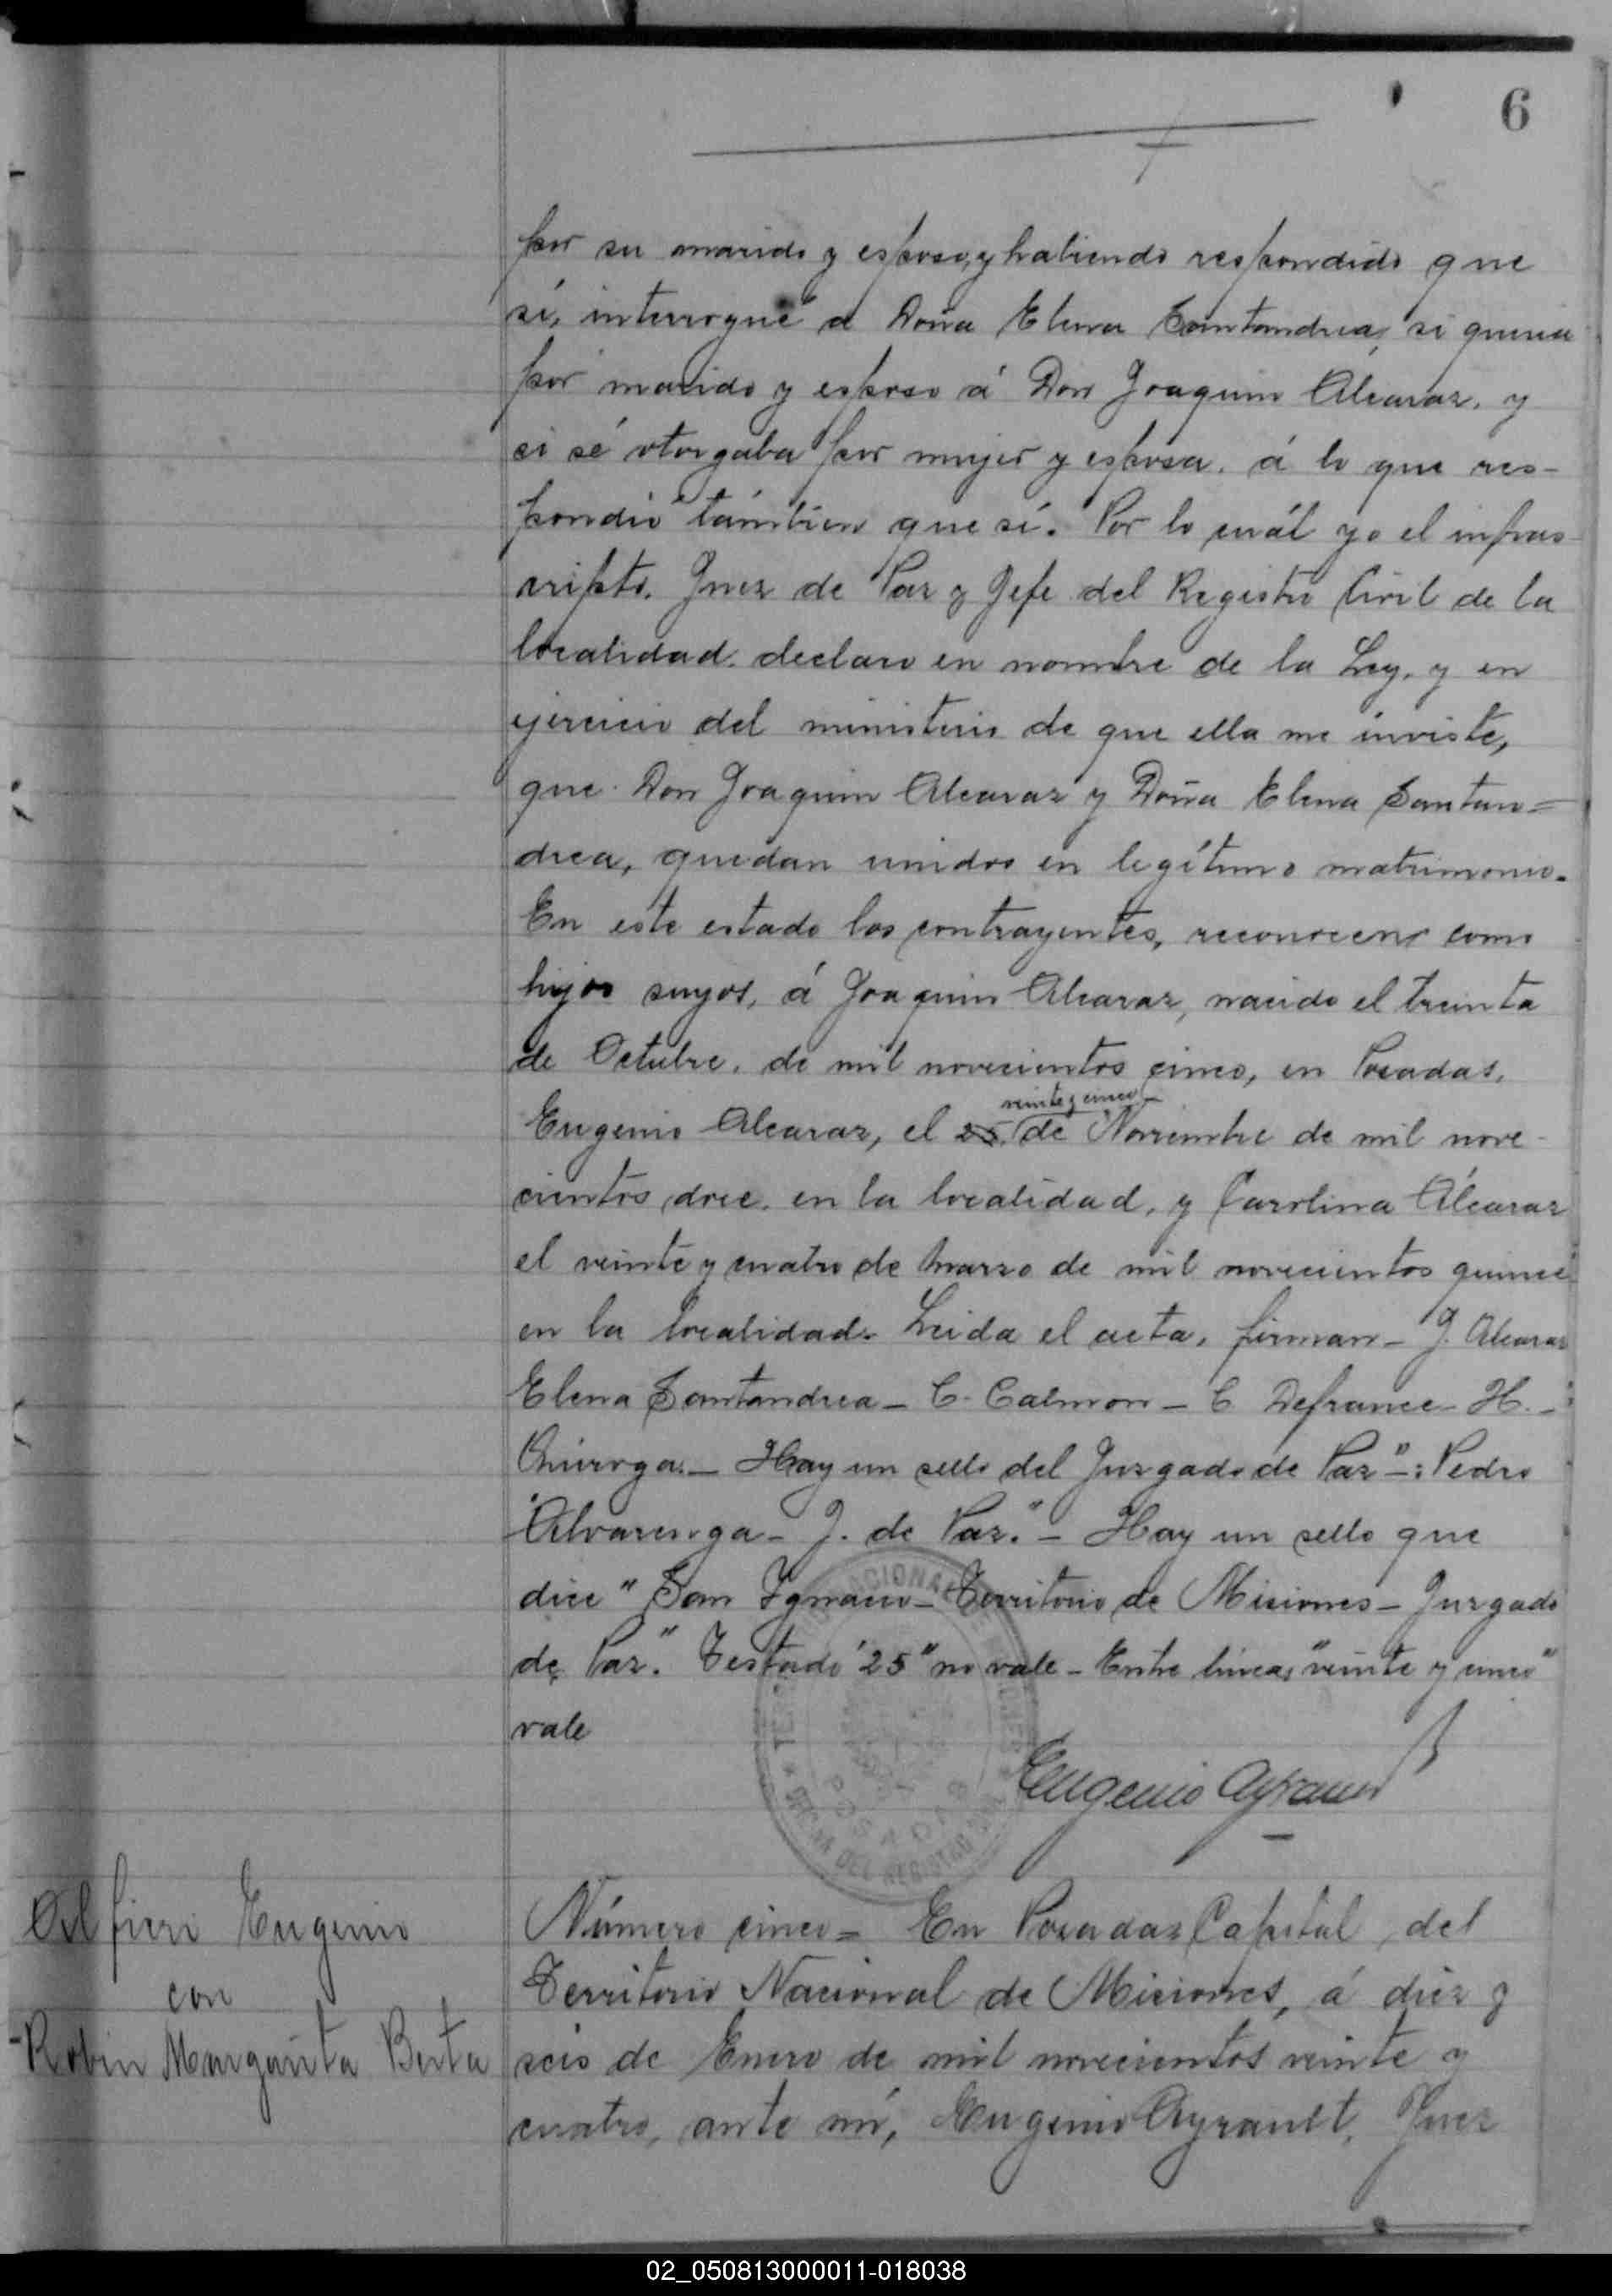 6
por su marido y esposo, y habiendo respondido que
sí, interrogué a Doña Elena Santandrea, si queria
por marido y esposo á Don Joaquin Alcaraz, y
si sé otorgaba por mujer y esposa, á lo que res-
pondió támbien que sí. Por lo cuál yo el infras-
cripto, Juez de Paz y Jefe del Registro Civil de la
localidad, declaro en nombre de la Ley, y en
ejercicio del ministerio de que ella me inviste,
que Don Joaquin Alcaraz y Doña Elena Santan=
drea, quedan unidos en legítimo matrimonio.
En este estado los contrayentes, reconocen como
hijos suyos, á Joaquin Alcaraz, nacido el treinta
de Octubre, de mil novecientos cinco, en Posadas,
veinte y cinco
Eugenio Alcaraz, el 25 de Noviembre de mil nove-
cientos doce, en la localidad, y Carolina Alcaraz
el veinte y cuatro de Marzo de mil novecientos quince
en la localidad. Leida el acta, firman - J. Alcaraz
Elena Santandrea - C. Calmon - C Defrance - H. -
Quiroga. - Hay un sello del Juzgado de Paz" -: Pedro
Alvarenga - J. de Paz." - Hay un sello que
dice "San Ignacio - Territorio de Misiones - Juzgado
de Paz." Testado "25" no vale - Entre lineas "veinte y cinco"
vale
Eugenio Ayrault
Alfieri Eugenio
con
Robin Margarita Berta
Número cinco = En Posadas Capital del
Territorio Nacional de Misiones, á diez y
seis de Enero de mil novecientos veinte y
cuatro, ante mí, Eugenio Ayrault, Juez
02_050813000011-018038